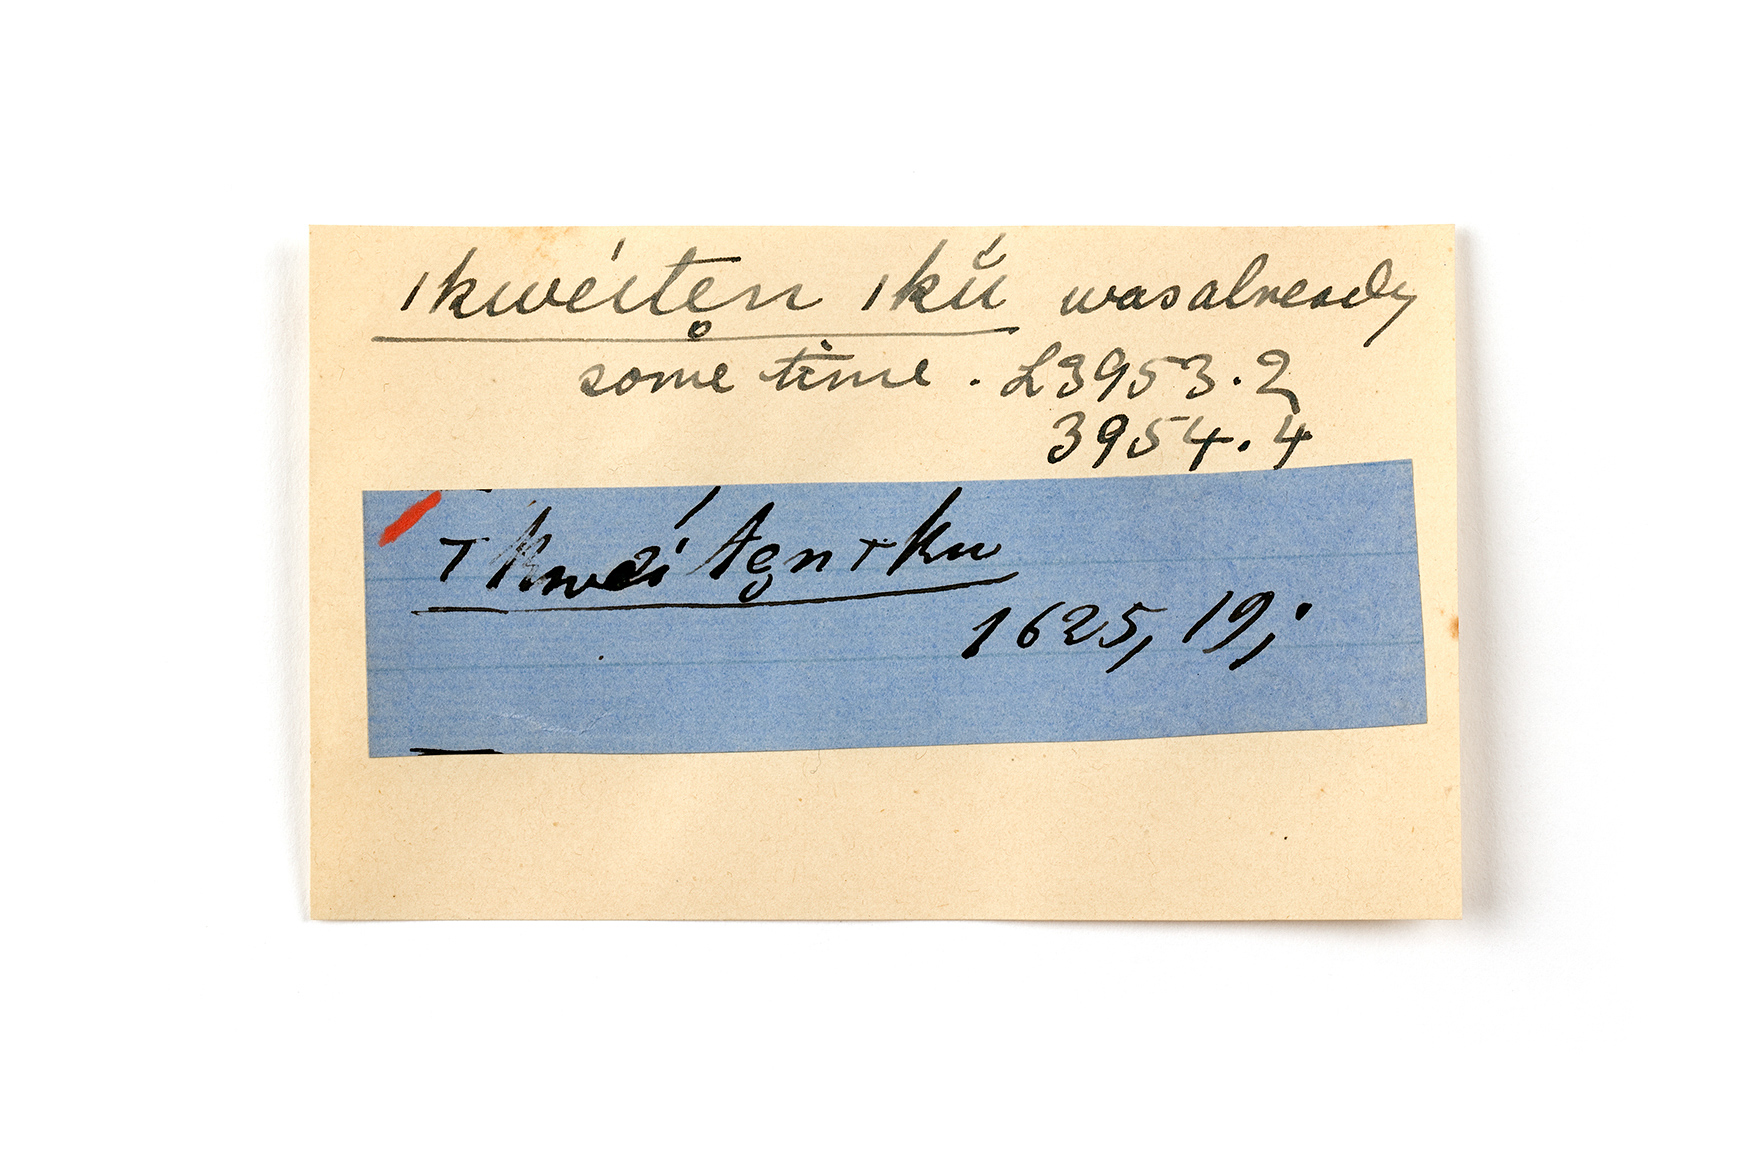 ıkwéıte̥n ıkŭ was already
some time. L3953.2
3954.4
ꞮkwéitẹnꞮku
1625, 19;